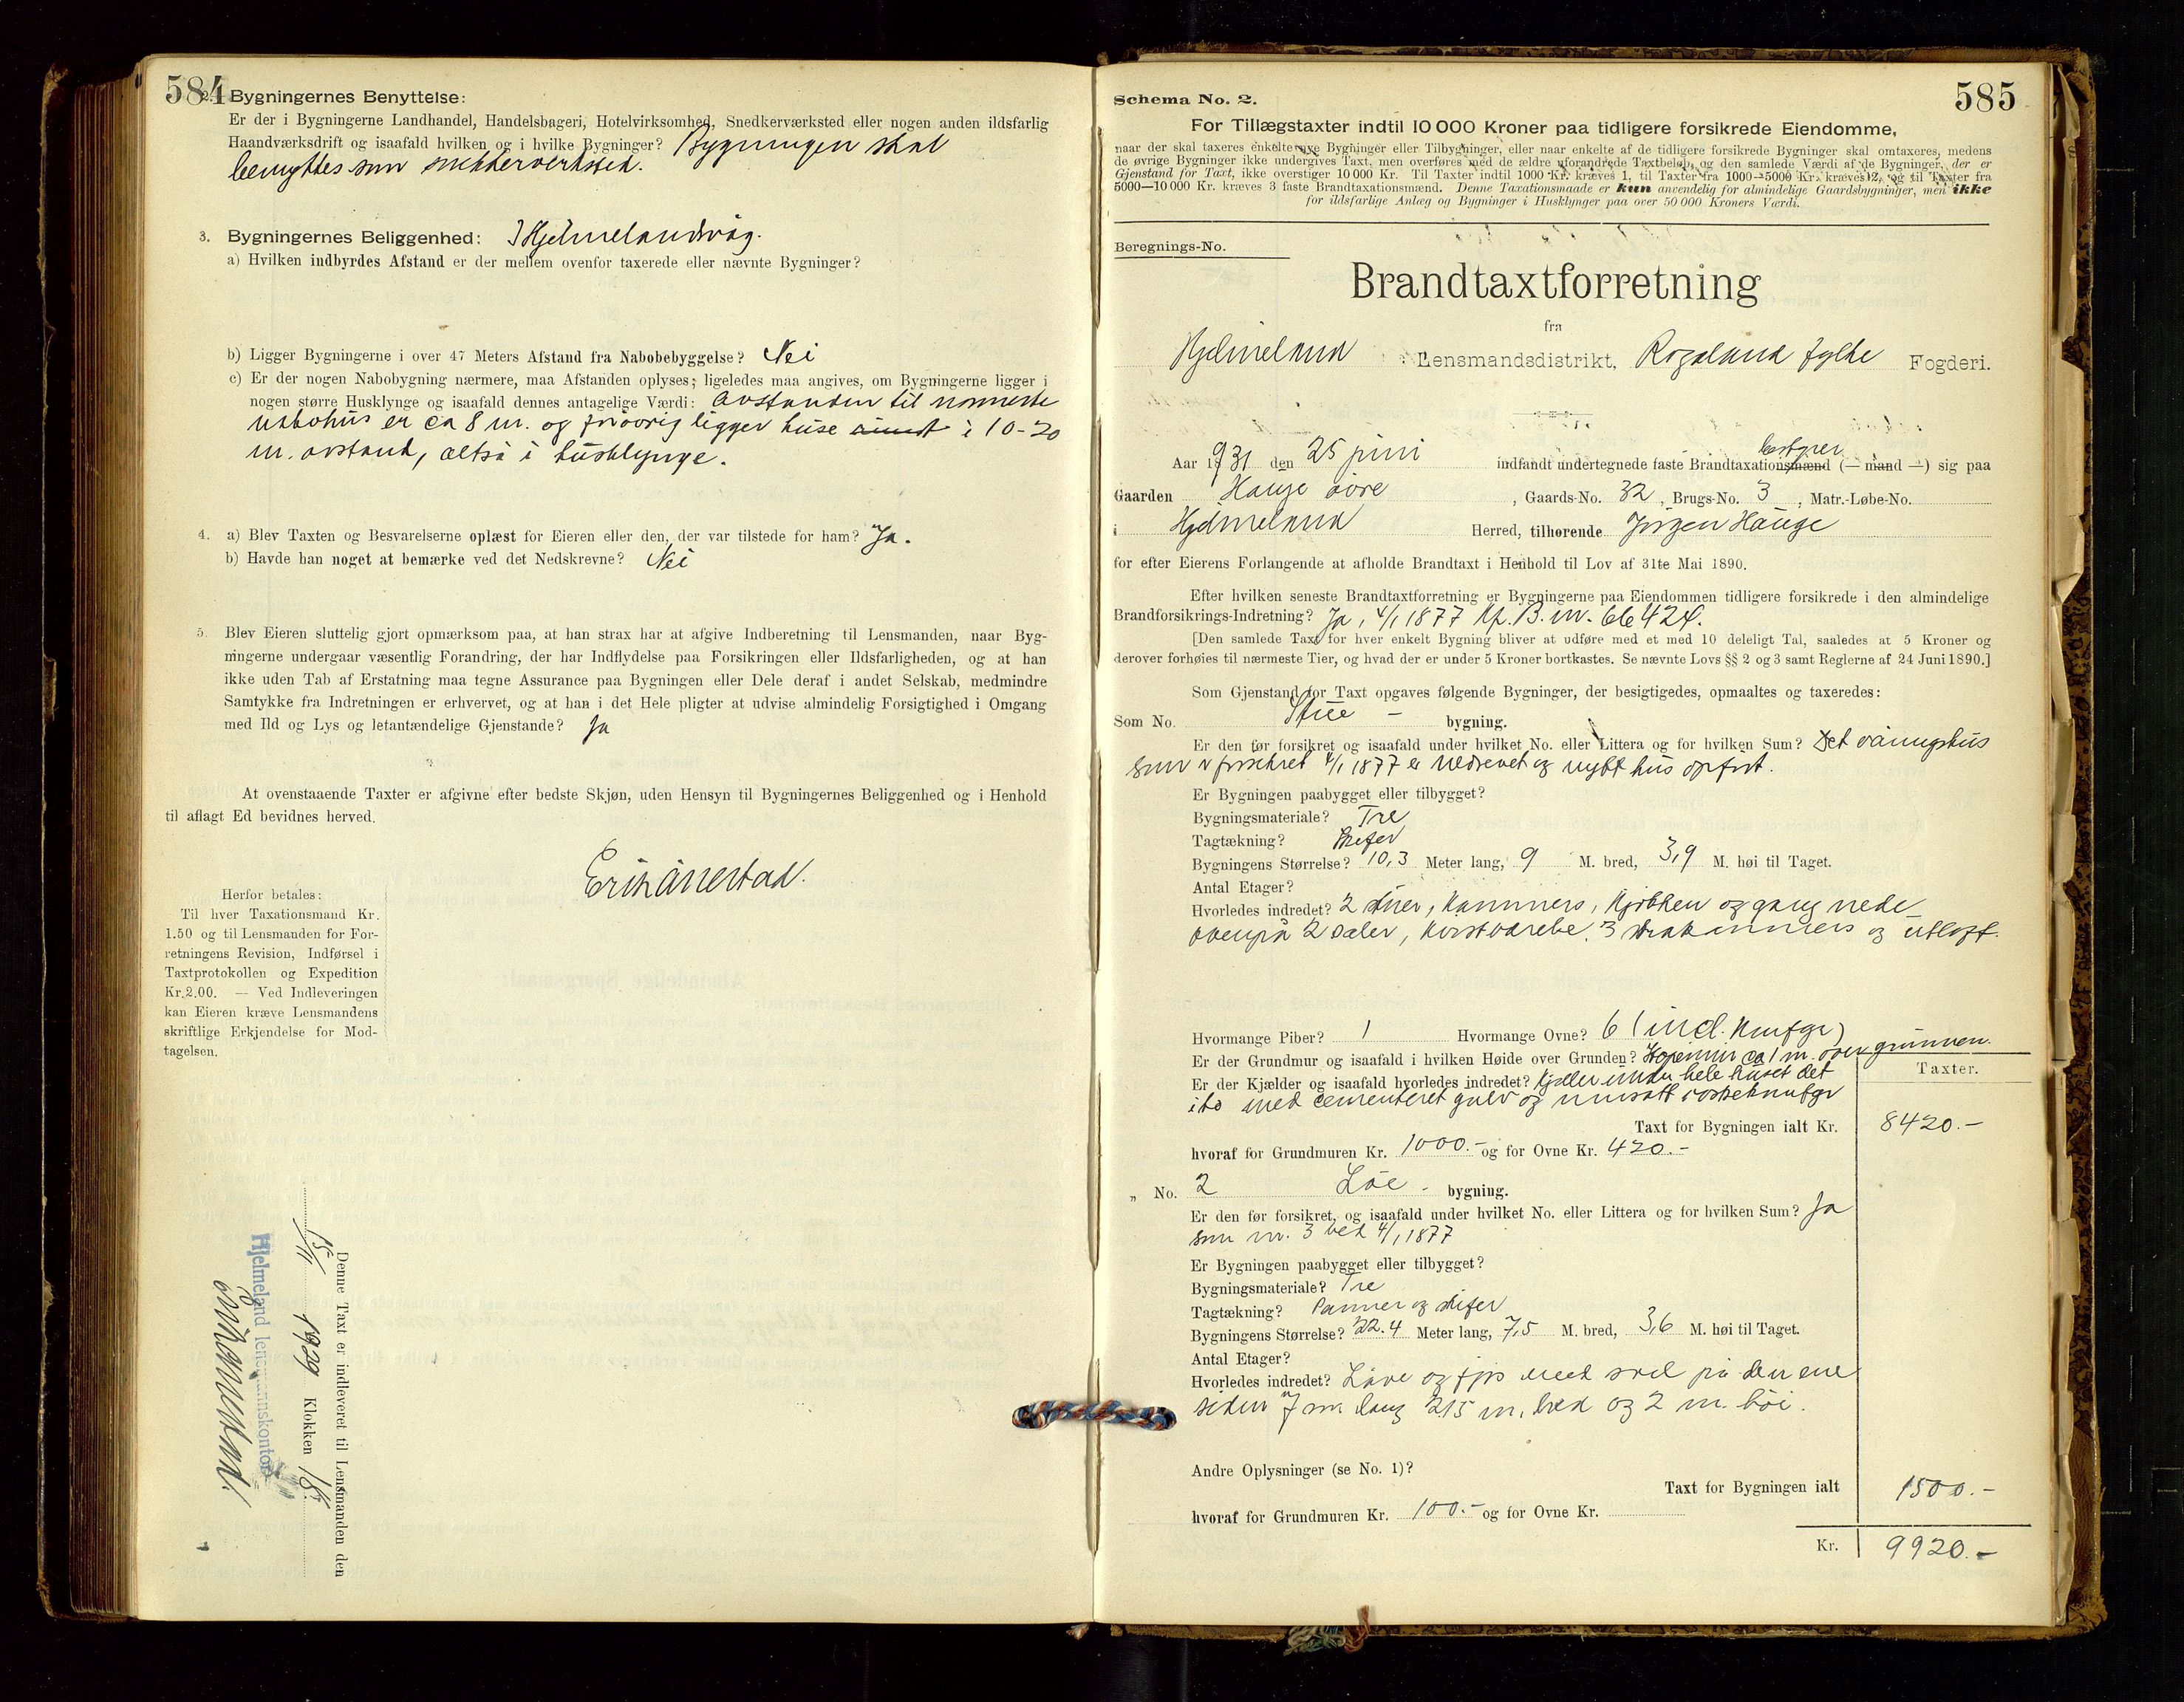 584
2. Bygningernes Benyttelse:
Er der i Bygningerne Landhandel, Handelsbageri, Hotelvirksomhed, Snedkerværksted eller nogen anden ildsfarlig
Haandværksdrift og isaafald hvilken og i hvilke Bygninger? Bygningen skal
benyttes som snekkerverksted.
3. Bygningernes Beliggenhed: I Hjelmelandsvåg.
a) Hvilken indbyrdes Afstand er der mellem ovenfor taxerede eller nævnte Bygninger?
b) Ligger Bygningerne i over 47 Meters Afstand fra Nabobebyggelse? Nei
c) Er der nogen Nabobygning nærmere, maa Afstanden oplyses; ligeledes maa angives, om Bygningerne ligger i
nogen større Husklynge og isaafald dennes antagelige Værdi: Avstanden til nærmeste
nabohus er ca 8 m. og forøvrig ligger huse i 10-20
m. avstand, altså i husklynge.
4. a) Blev Taxten og Besvarelserne oplæst for Eieren eller den, der var tilstede for ham? Ja.
b) Havde han noget at bemærke ved det Nedskrevne? Nei
5. Blev Eieren sluttelig gjort opmærksom paa, at han strax har at afgive Indberetning til Lensmanden, naar Byg-
ningerne undergaar væsentlig Forandring, der har Indflydelse paa Forsikringen eller Ildsfarligheden, og at han
ikke uden Tab af Erstatning maa tegne Assurance paa Bygningen eller Dele deraf i andet Selskab, medmindre
Samtykke fra Indretningen er erhvervet, og at han i det Hele pligter at udvise almindelig Forsigtighed i Omgang
med Ild og Lys og letantændelige Gjenstande? Ja
At ovenstaaende Taxter er afgivne efter bedste Skjøn, uden Hensyn til Bygningernes Beliggenhed og i Henhold
til aflagt Ed bevidnes herved.
Erik Ånestad.
Herfor betales:
Til hver Taxationsmand Kr.
1.50 og til Lensmanden for For-
retningens Revision, Indførsel i
Taxtprotokollen og Expedition
Kr. 2.00. — Ved Indleveringen
kan Eieren kræve Lensmandens
skriftlige Erkjendelse for Mod-
tagelsen.
Denne Taxt er indleveret til Lensmanden den
15/11 1929 Klokken 18.
Hjelmeland lensmannskontor
Erik Ånestad.
585
Schema No. 2.
For Tillægstaxter indtil 10 000 Kroner paa tidligere forsikrede Eiendomme,
naar der skal taxeres enkelte nye Bygninger eller Tilbygninger, eller naar enkelte af de tidligere forsikrede Bygninger skal omtaxeres, medens
de øvrige Bygninger ikke undergives Taxt, men overføres med de ældre uforandrede Taxtbeløb, og den samlede Værdi af de Bygninger, der er
Gjenstand for Taxt, ikke overstiger 10 000 Kr. Til Taxter indtil 1000 Kr. kræves 1, til Taxter fra 1000—5000 Kr. kræves 2, og til Taxter fra
5000—10 000 Kr. kræves 3 faste Brandtaxationsmænd. Denne Taxationsmaade er kun anvendelig for almindelige Gaardsbygninger, men ikke
for ildsfarlige Anlæg og Bygninger i Husklynger paa over 50 000 Kroners Værdi.
Beregnings-No.
Brandtaxtforretning
fra
Hjelmeland Lensmandsdistrikt, Rogaland fylke Fogderi.
Aar 1931 den 25 juni indfandt undertegnede faste Brandtaxationsmænd (— mand —) sig paa
Gaarden Hauge øvre, Gaards-No. 32, Brugs-No. 3, Matr.-Løbe-No.
i Hjelmeland Herred, tilhørende Jørgen Hauge
for efter Eierens Forlangende at afholde Brandtaxt i Henhold til Lov af 31te Mai 1890.
Efter hvilken seneste Brandtaxtforretning er Bygningerne paa Eiendommen tidligere forsikrede i den almindelige
Brandforsikrings-Indretning? Ja, 4/1 1877 Kp. B. nr. 66424.
[Den samlede Taxt for hver enkelt Bygning bliver at udføre med et med 10 deleligt Tal, saaledes at 5 Kroner og
derover forhøies til nærmeste Tier, og hvad der er under 5 Kroner bortkastes. Se nævnte Lovs §§ 2 og 3 samt Reglerne af 24 Juni 1890.]
Som Gjenstand for Taxt opgaves følgende Bygninger, der besigtigedes, opmaaltes og taxeredes:
Som No. Stue - bygning.
Er den før forsikret og isaafald under hvilket No. eller Littera og for hvilken Sum? Det våningshus
som er forsikret 4/1 1877 er nedrevet og nytt hus opført.
Er Bygningen paabygget eller tilbygget?
Bygningsmateriale? Tre
Tagtækning? Skifer
Bygningens Størrelse? 10,3 Meter lang, 9 M. bred, 3,9 M. høi til Taget.
Antal Etager?
Hvorledes indredet? 2 stuer, kammers, kjøkken og gang nede
ovenpå 2 saler, 3 og utloft.
Hvormange Piber? 1 Hvormange Ovne? 6 (incl. komfyr)
Er der Grundmur og isaafald i hvilken Høide over Grunden? ca 1 m. over grunnen.
Er der Kjælder og isaafald hvorledes indredet? Kjeller under hele huset det
med cementeret gulv og
Taxter.
Taxt for Bygningen ialt Kr. 8420.-
hvoraf for Grundmuren Kr. 1000.- og for Ovne Kr. 420.-
„ No. 2 Löe - bygning.
Er den før forsikret, og isaafald under hvilket No. eller Littera og for hvilken Sum? Ja
som nr. 3 ved 4/1 1877
Er Bygningen paabygget eller tilbygget?
Bygningsmateriale? Tre
Tagtækning? Panner og skifer
Bygningens Størrelse? 22.4 Meter lang, 7,5 M. bred, 3,6 M. høi til Taget.
Antal Etager?
Hvorledes indredet? Låve og fjøs med sval på den ene
siden 7 m. lang 2,15 m. bred og 2 m. høi.
Andre Oplysninger (se No. 1)?
Taxt for Bygningen ialt 1500.-
hvoraf for Grundmuren Kr. 100.- og for Ovne Kr.
Kr. 9920.-